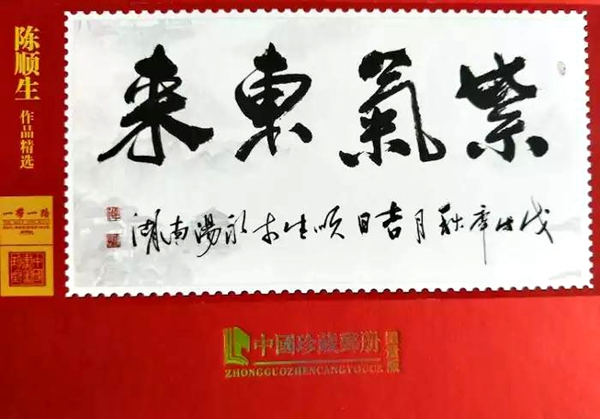 陈顺生
作品精选
紫氣東来
戊戌年秋月吉日顺生书於陽南湖
一带一路
中國珍藏郵册
ZHONGGUOZHENCANGYOUCE